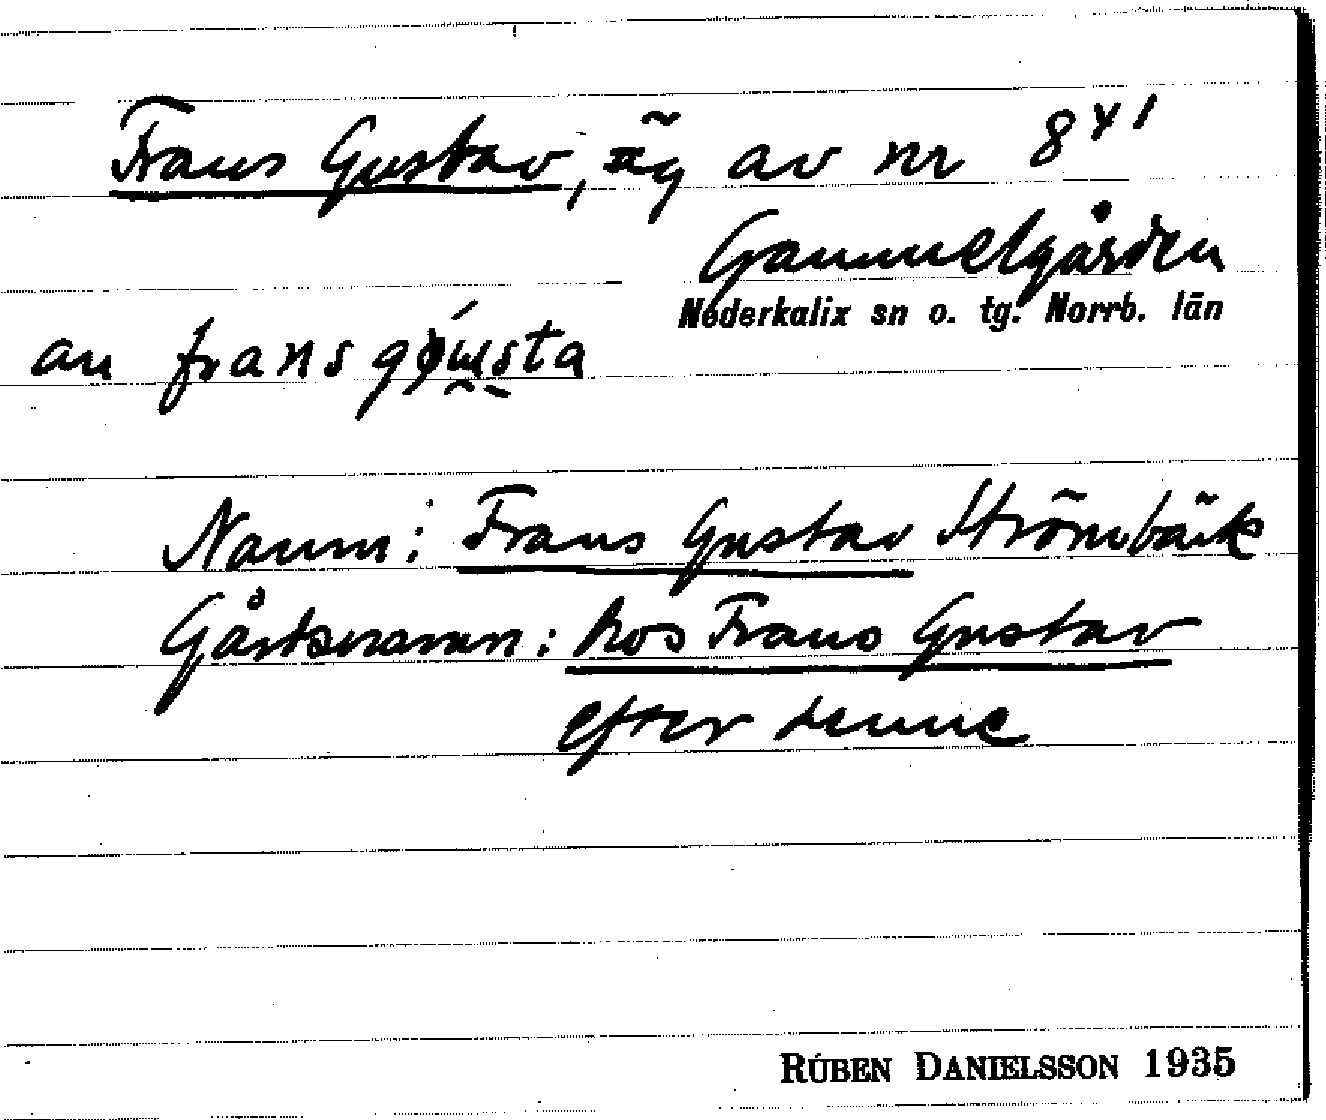 Frans Gustav, äg av nr 8⁴¹
Gammelgården
Nederkalix sn o. tg. Norrb. län
an frans
Namn: Frans Gustav Strömbäck
Gårdsnamn: hos Frans Gustav
efter denne
RUBEN DANIELSSON 1935